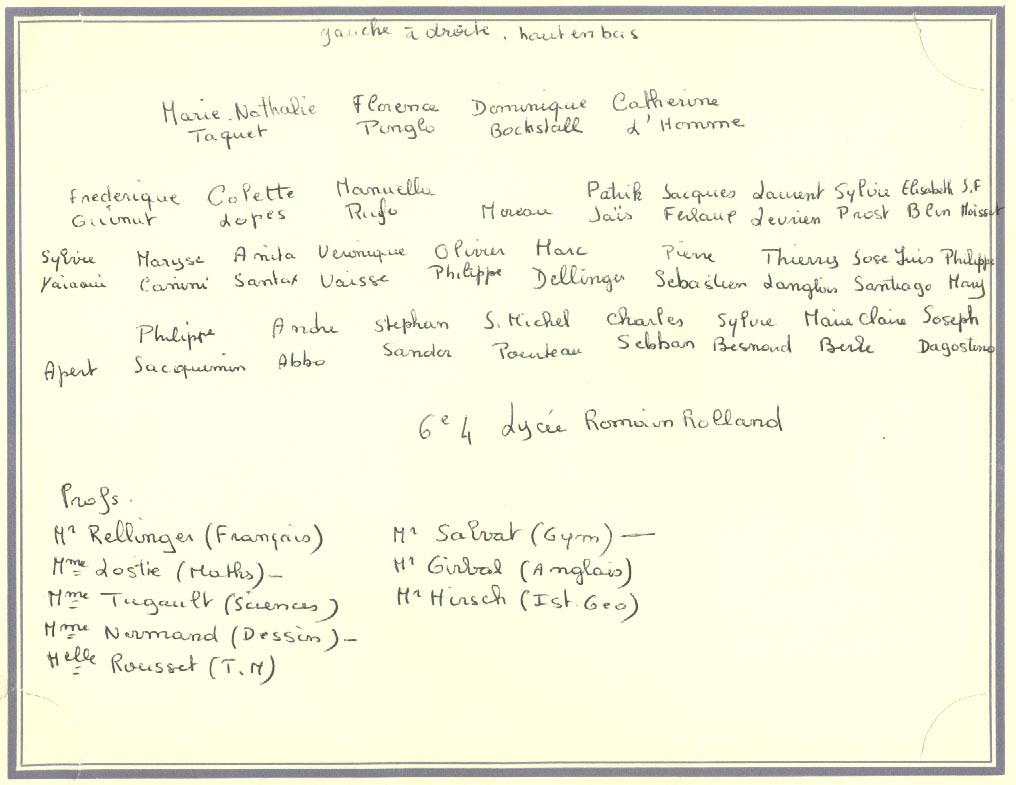 gauche à droite. haut en bas
Marie.Nathalie Florence Dominique Catherine
Taquet Pinglo Bockstall d'Homme
Frederique Colette Manuella Patrik Jacques Laurent Sylvie Elisabeth S.F
Lopes Rufo Moreau Jaïs Levrien Prost Blin Moisset
Sylvie Maryse Anita Veronique Olivier Marc Pierre Thierry Jose Luis Philippe
Canini Santax Vaisse Philippe Dellinger Sebastien Langlois Santiago Mary
Philippe Andre Stephan S.Michel Charles Sylvie Marie Claire Joseph
Apert Jacquemin Abbo Sandor Pointeau Sebban Besnond Berle Dagostino
6e 4 Lycée Romain Rolland
Profs.
Mr Rellinger (Français) Mr Salvat (Gym) —
Mme Lostie (Maths) - Mr Girbal (Anglais)
Mme Tugault (Sciences) Mr Hirsch (Ist. Geo)
Mme Normand (Dessin) -
Melle Rousset (T.M)